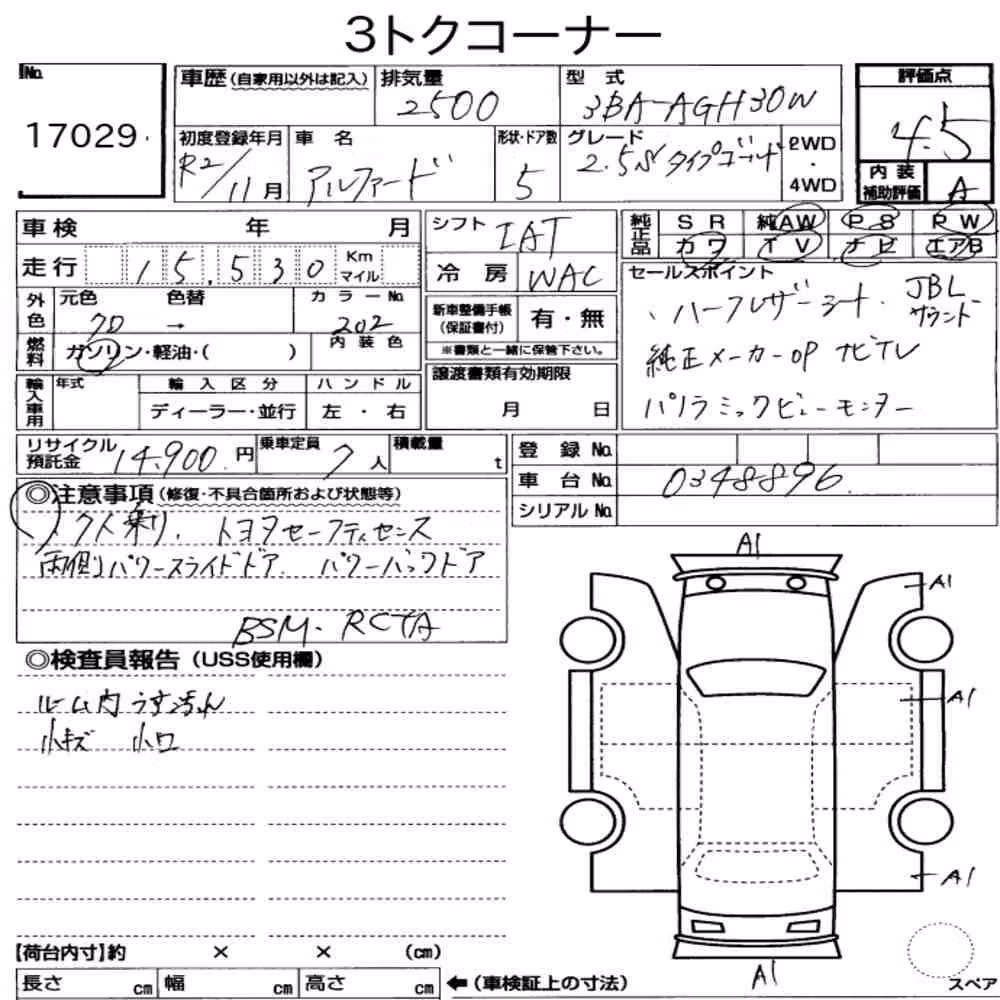 3トクコーナー
No.
17029
車歴(自家用以外は記入)
排気量
2500
型 式
3BA-AGH30W
評価点
4.5
初度登録年月
R2/11月
車 名
アルファード
形状・ドア数
5
グレード
2.5S タイプゴールド
2WD
・
4WD
内 装
補助評価
A
車検 年 月
シフト
IAT
純正品
SR 純AW PS PW
カワ TV ナビ エアB
走行 15,530 Km マイル
冷房
WAC
セールスポイント
ハーフレザーシート. JBLサウンド
純正メーカーOP ナビTV
パノラミックビューモニター
外色
元色 色替
70 →
カラーNo.
202
新車整備手帳
(保証書付)
有・無
※書類と一緒に保管下さい。
燃料
ガソリン・軽油・( )
内装色
輸入車用
年式
輸入区分
ディーラー・並行
ハンドル
左・右
譲渡書類有効期限
月 日
リサイクル
預託金
14,900円
乗車定員
7人
積載量
t
登録 No.
車台 No.
0348896
シリアル No.
◎注意事項(修復・不具合箇所および状態等)
7人乗り. トヨタセーフティセンス
両側パワースライドドア. パワーバックドア
BSM. RCTA
◎検査員報告(USS使用欄)
ルーム内うすよごれ
小キズ 小凹
A1
A1
A1
A1
A1
【荷台内寸】約 × × (cm)
長さ cm 幅 cm 高さ cm
←(車検証上の寸法)
スペア